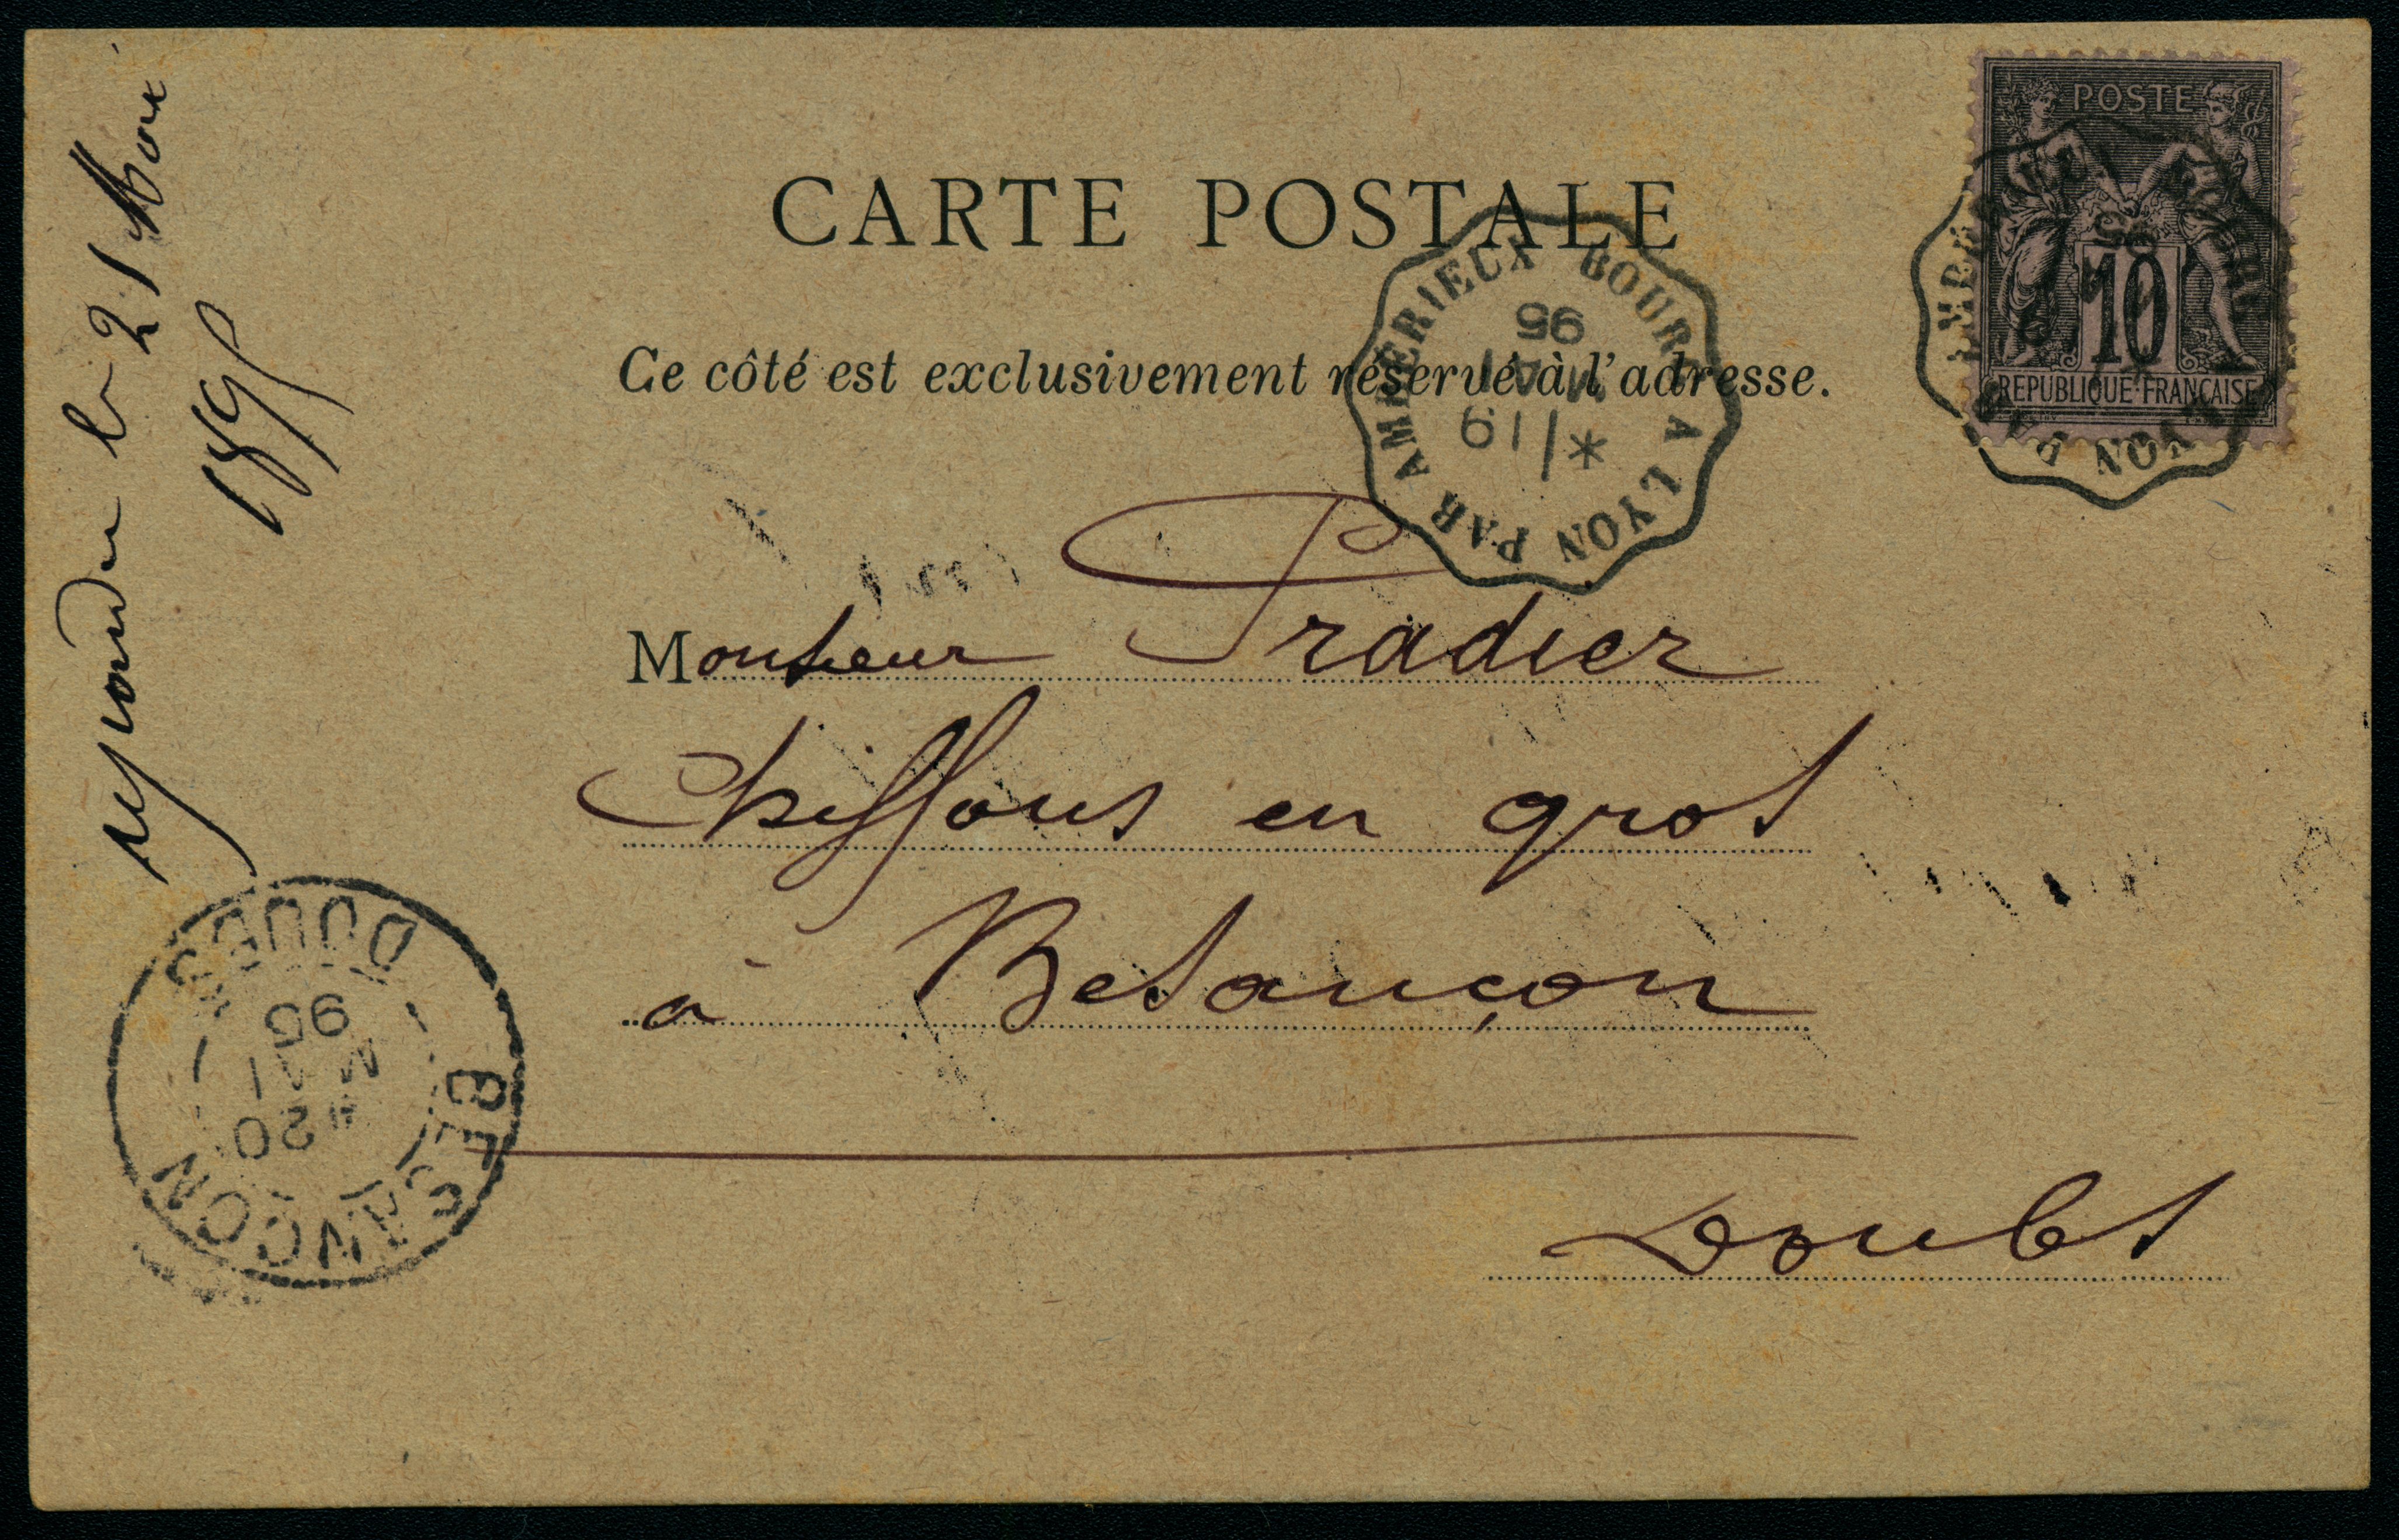 répondu le 21 Mai
1895
POSTE
10
REPUBLIQUE FRANCAISE
CARTE POSTALE
BOURG A LYON PAR AMBERIEUX
95
MAI
19
Ce côté est exclusivement réservé à l'adresse.
Monsieur Pradier
Chiffons en gros
à Besançon
Doubs
BESANCON
20
MAI
95
DOUBS